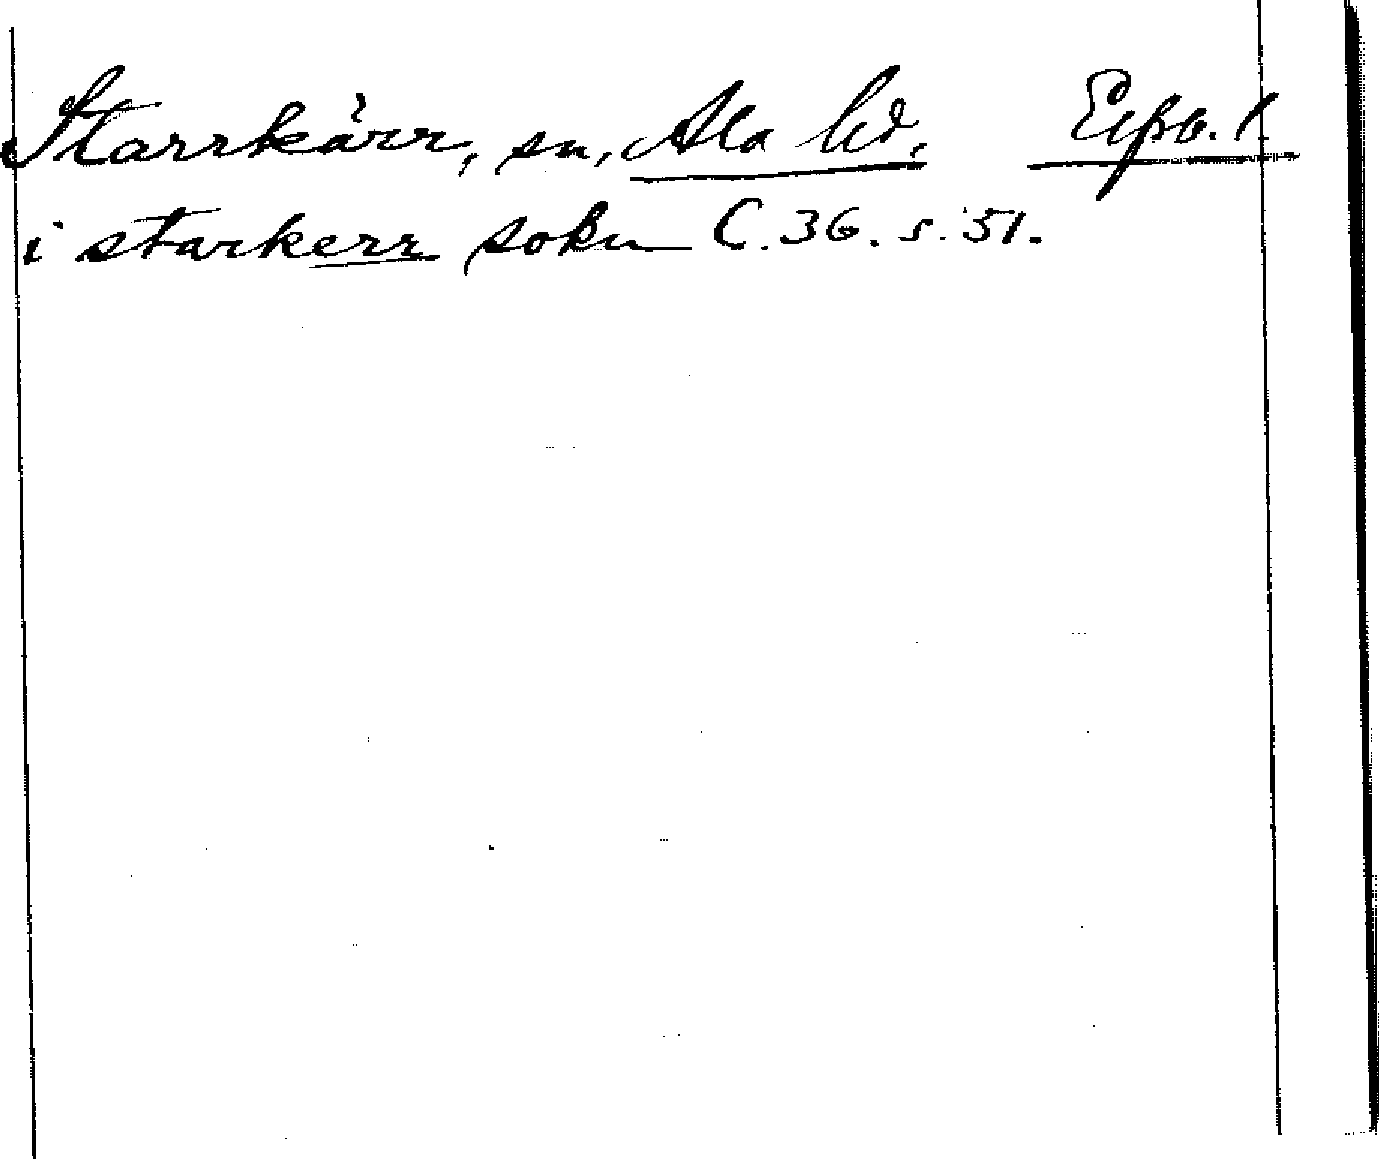 Starrkärr, sn, Ala hd. Erpb. 1.
i starkerr sokn C. 36. s. 51.